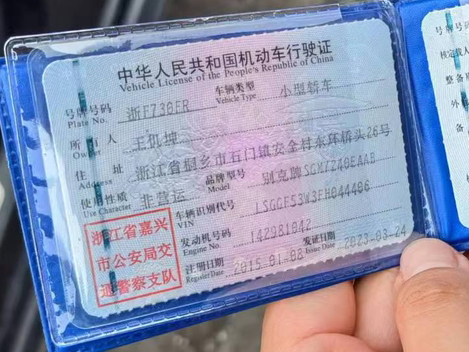 中华人民共和国机动车行驶证
Vehicle License of the People's Republic of China
号牌号码 浙F730FR 车辆类型 小型轿车
Plate No. Vehicle Type
所有人 王凯坤
Owner
住址 浙江省桐乡市石门镇安全村东环桥头26号
Address
使用性质 非营运 品牌型号 别克牌SGM7240EAAB
Use Character Model
浙江省嘉兴
市公安局交
通警察支队
车辆识别代号 LSGGF53W3FH044406
VIN
发动机号码 142981042
Engine No.
注册日期 2015-01-08 发证日期 2023-03-24
Register Date Issue Date
号牌号
核定载人
整备